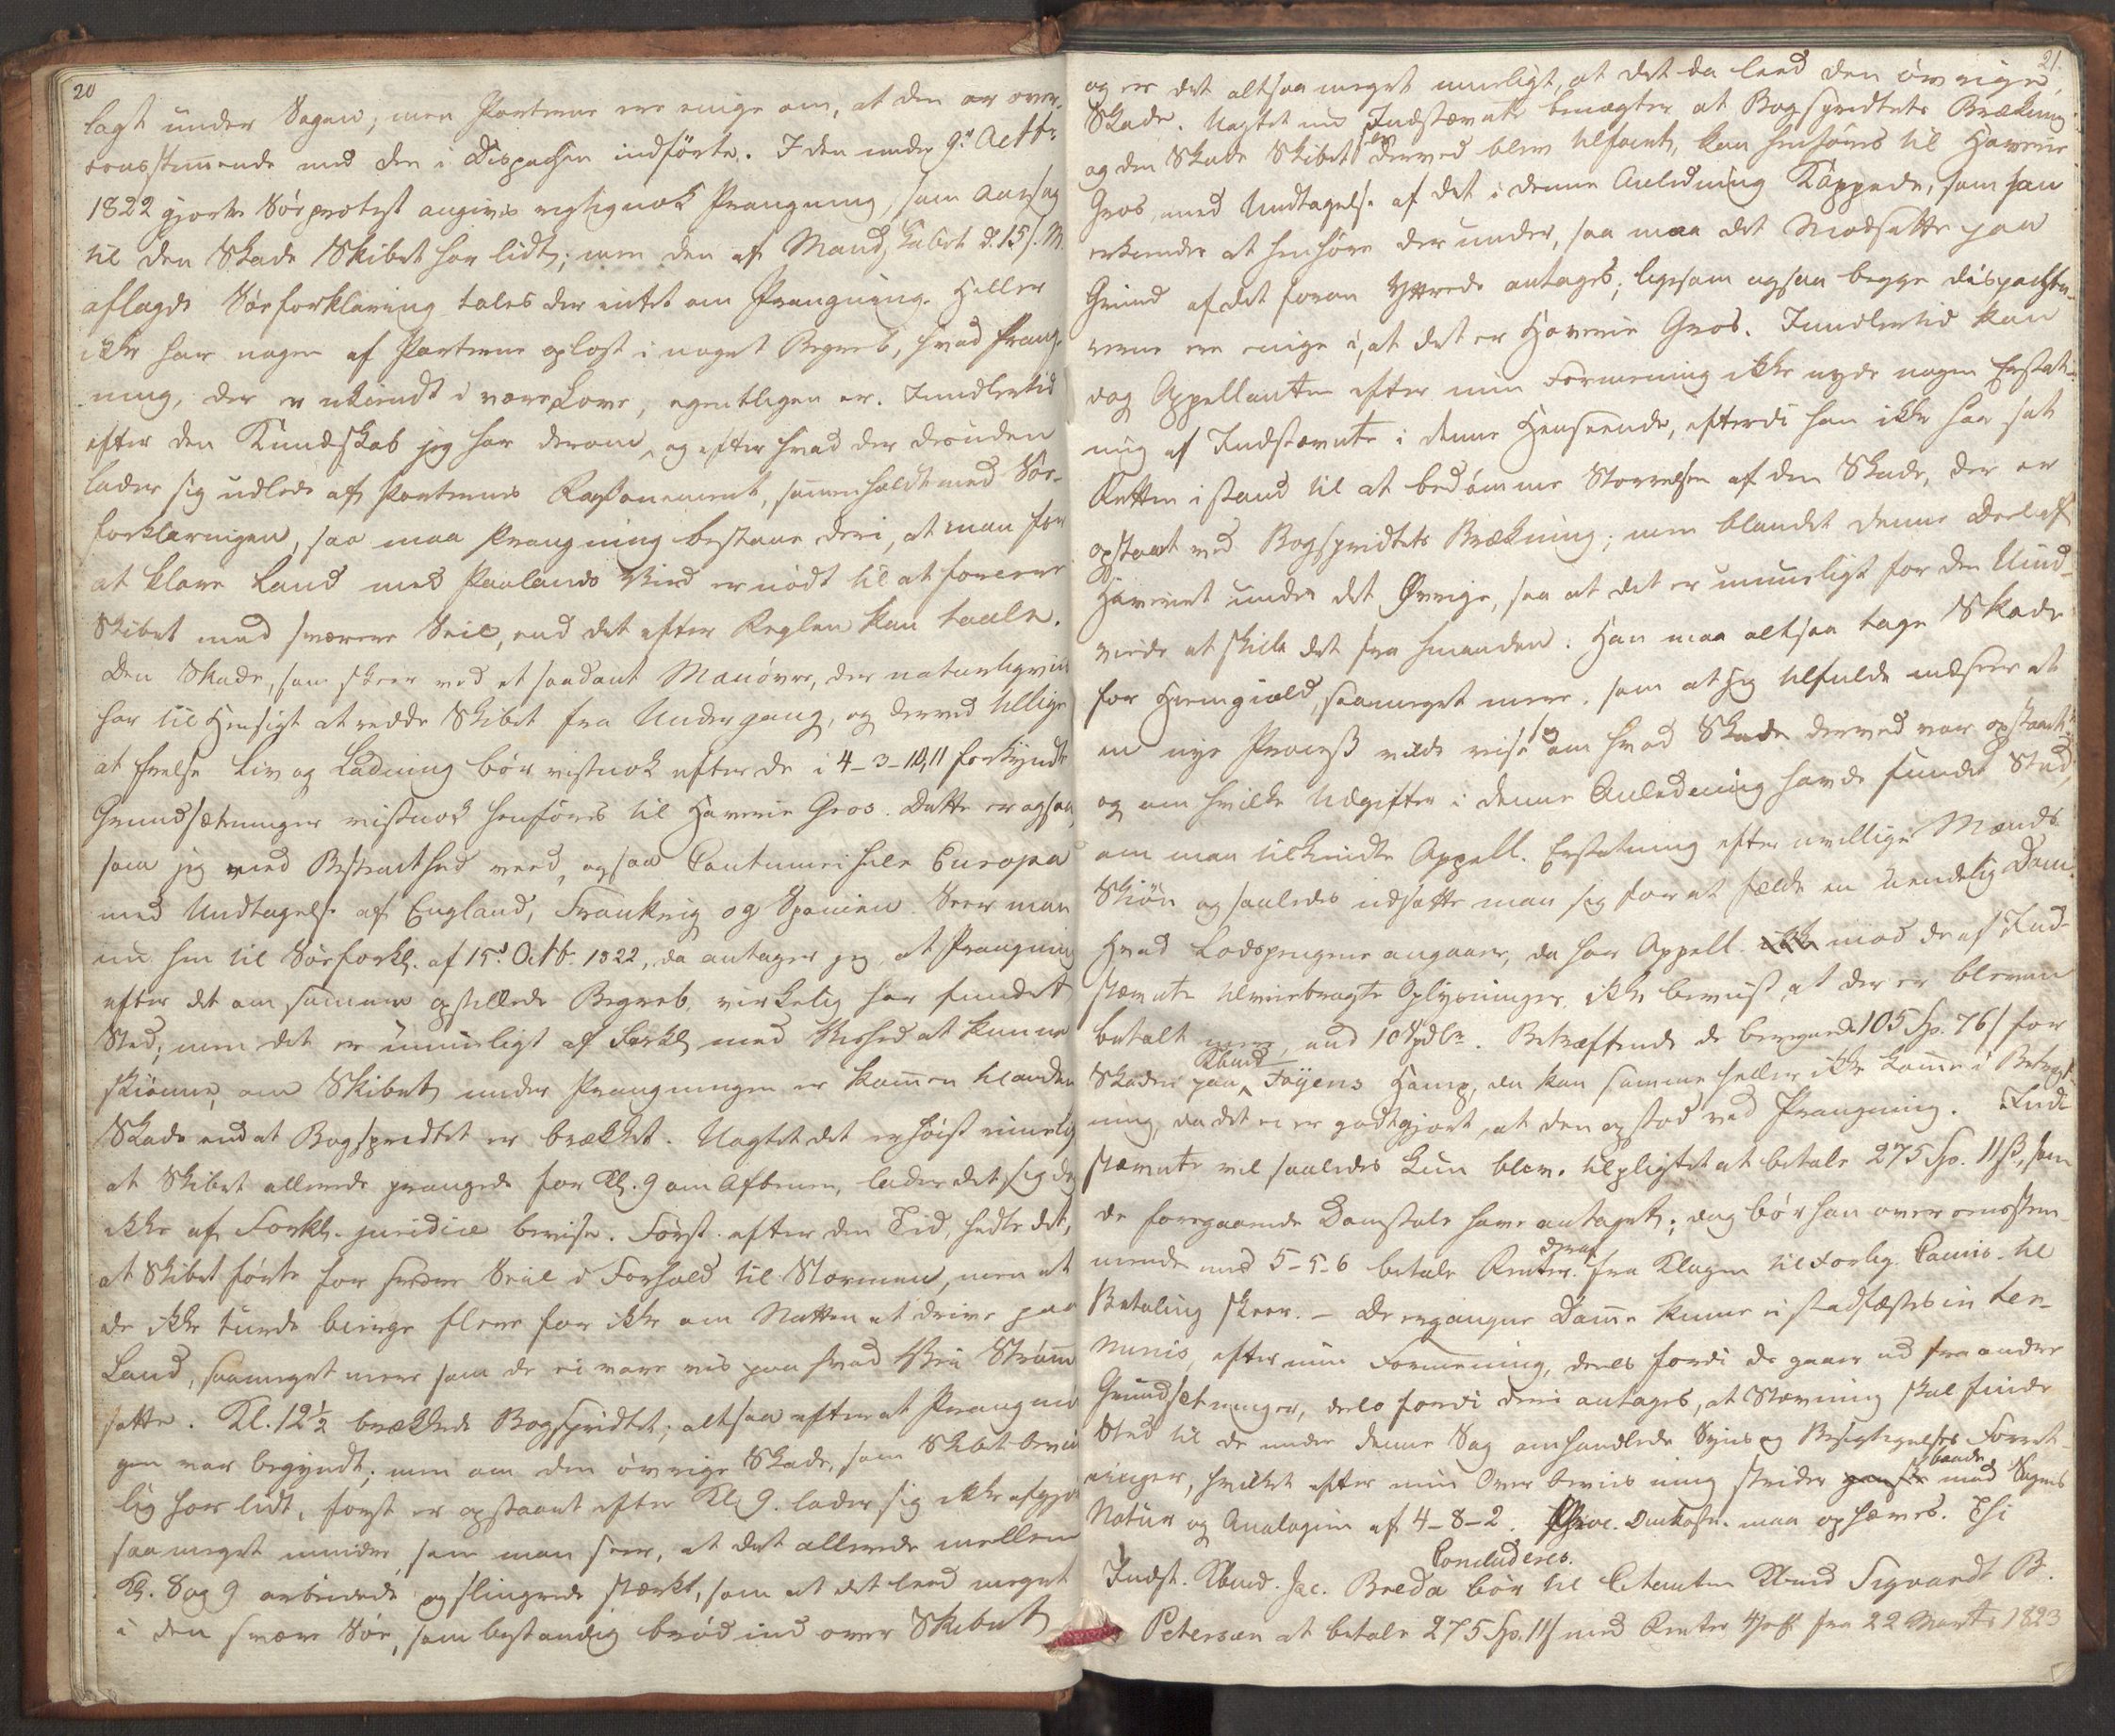 20
lagt under Sagen; men Parterne ere enige om, at den er over-
eensstemmende med den i Dispachen indførte. I den under 9d Octbr
1822 gjorte Søeprotest angives rigtignok Prangning, som Aarsag
til den Skade Skibet har lidt; men den af Mandskabet d. 15 s. M.
aflagde Søeforklaring tales der intet om Prangning. Heller
ikke har nogen af Parterne oplost i noget Begreb, hvad Prang-
ning, der er ukiendt i vore Love, egentligen er. Imidlertid
efter den Kundskab jeg har derom, og efter hvad der desuden
lader sig udlede af Parternes Raisonement, sammenholdt med Søe-
forklaringen, saa maa Prangning bestaae deri, at man for
at klare Land med Paalands Vind er nødt til at forcere
Skibet med sværere Seil, end det efter Reglen kan taale.
Den Skade, som skeer ved et saadant Manøvre, der naturligviis
har til Hensigt at redde Skibet fra Undergang, og derved tillige
at frelse Liv og Ladning bør vistnok efter de i 4-3-10, 11 forkyndte
Grundsætninger vistnok henføres til Haverie Gros. Dette er ogsaa,
som jeg med Bestemthed veed, ogsaa Coutume i hele Europa
med Undtagelse af England, Frankrig og Spanien. Seer man
nu hen til Søeforkl. af 15d Octbr 1822, da antager jeg, at Prangning
efter det om samme opstillede Begreb, virkelig har fundet
Sted; men det er umueligt af Forkl. med Vished at kunne
skiønne, om Skibet under Prangningen er kommen til anden
Skade end at Bogspridtet er brækket. Uagtet det er høist rimelig
at Skibet allerede prangede før Kl. 9 om Aftenen, lader det sig dog
ikke af Forkl. juridice bevise. Først efter den Tid, hedte det,
at Skibet førte for svære Seil i Forhold til Stormen, men at
de ikke turde bierge flere for ikke om Natten at drive paa
Land, saameget mere som de ei vare vis paa hvad Vei Strømm
satte. Kl. 12½ brækkede Bogspridtet; altsaa efterat Prangnin-
gen var begyndt; men om den øvrige Skade, som Skibet bevis-
lig har lidt, først er opstaaet efter Kl. 9. lader sig ikke afgjøre
saa meget mindre, som man seer, at det allerede mellem
Kl. 8 og 9 arbeidede og slingrede stærkt, som at det leed meget
i den svære Søe, som bestandig brød ind over Skibet
21.
og er det altsaa meget mueligt, at det da leed den øvrige
Skade. Uagtet nu Indstævnte benægter at Bogspridtets Brækning
og den Skade Skibet derved blev tilføiet, kan henføres til Haverie
Gros, med Undtagelse af det i denne Anledning Kappede, som han
erkiender at henhøre derunder, saa maa det Modsatte paa
Grund af det foran Yttrede antages; ligesom ogsaa begge Dispacheu-
rerne ere enige i, at det er Haverie Gros. Imidlertid kan
dog Appellanten efter min Formening ikke nyde nogen Erstat-
ning af Indstævnte i denne Henseende, efterdi han ikke har sat
Retten istand til at bedømme Størrelsen af den Skade, der er
opstaaet ved Bogspridtets Brækning; men blandet denne Deel af
Haveriet under det Øvrige, saa at det er umueligt for den Uind-
viede at skille det fra hinanden. Han maa altsaa tage Skade
for Hiemgiæld, saameget mere, som at jeg tilfulde indseer at
en nye Proces vilde reise sig om hvad Skade derved var opstaaet
og om hvilke Udgifter i denne Anledning havde fundet Sted,
om man tilkiendte Appell. Erstatning efter uvillige Mænds
Skiøn og saaledes udsatte man sig for at fælde en uendelig Dom.
Hvad Lodspengene angaaer, da har Appell. mod de af Ind-
stævnte tilveiebragte Oplysninger, ikke beviist, at der er bleven
betalt mere, end 10 Spdlr. Betræffende de beregnede 105 Sp. 76 s for
Skaden paa Kbmd Føyens Hamp, da kan samme heller ikke komme i Betragt-
ning, da det ei er godtgjort, at den opstod ved Prangning. Ind-
stævnte vil saaledes kun blive tilpligtet at betale 275 Sp. 11 s, som
de foregaaende Domstole have antaget; dog bør han overeensstem-
mende med 5-5-6 betale Renter deraf fra Klagen til Forlig. Comis. til
Betaling skeer. – De ergangne Domme kunne ei stadfæstes in ter-
minis, efter min Formening, deels fordi de gaaer ud fra andre
Grundsætninger, deels fordi deri antages, at Stævning skal finde
Sted til de under denne Sag omhandlede Syns og Besigtigelses Forret-
ninger, hvilket efter min Overbeviisning strider baade mod Sagens
Natur og Analogien af 4-8-2. Proc. Omkostn. maa ophæves. Thi
Concluderes.
Indst. Kbmd. Jac. Breda bør til Citanten Kbmd Sigvardt B.
Petersen at betale 275 Sp. 11 s med Renter 4 pCt fra 22 Marts 1823